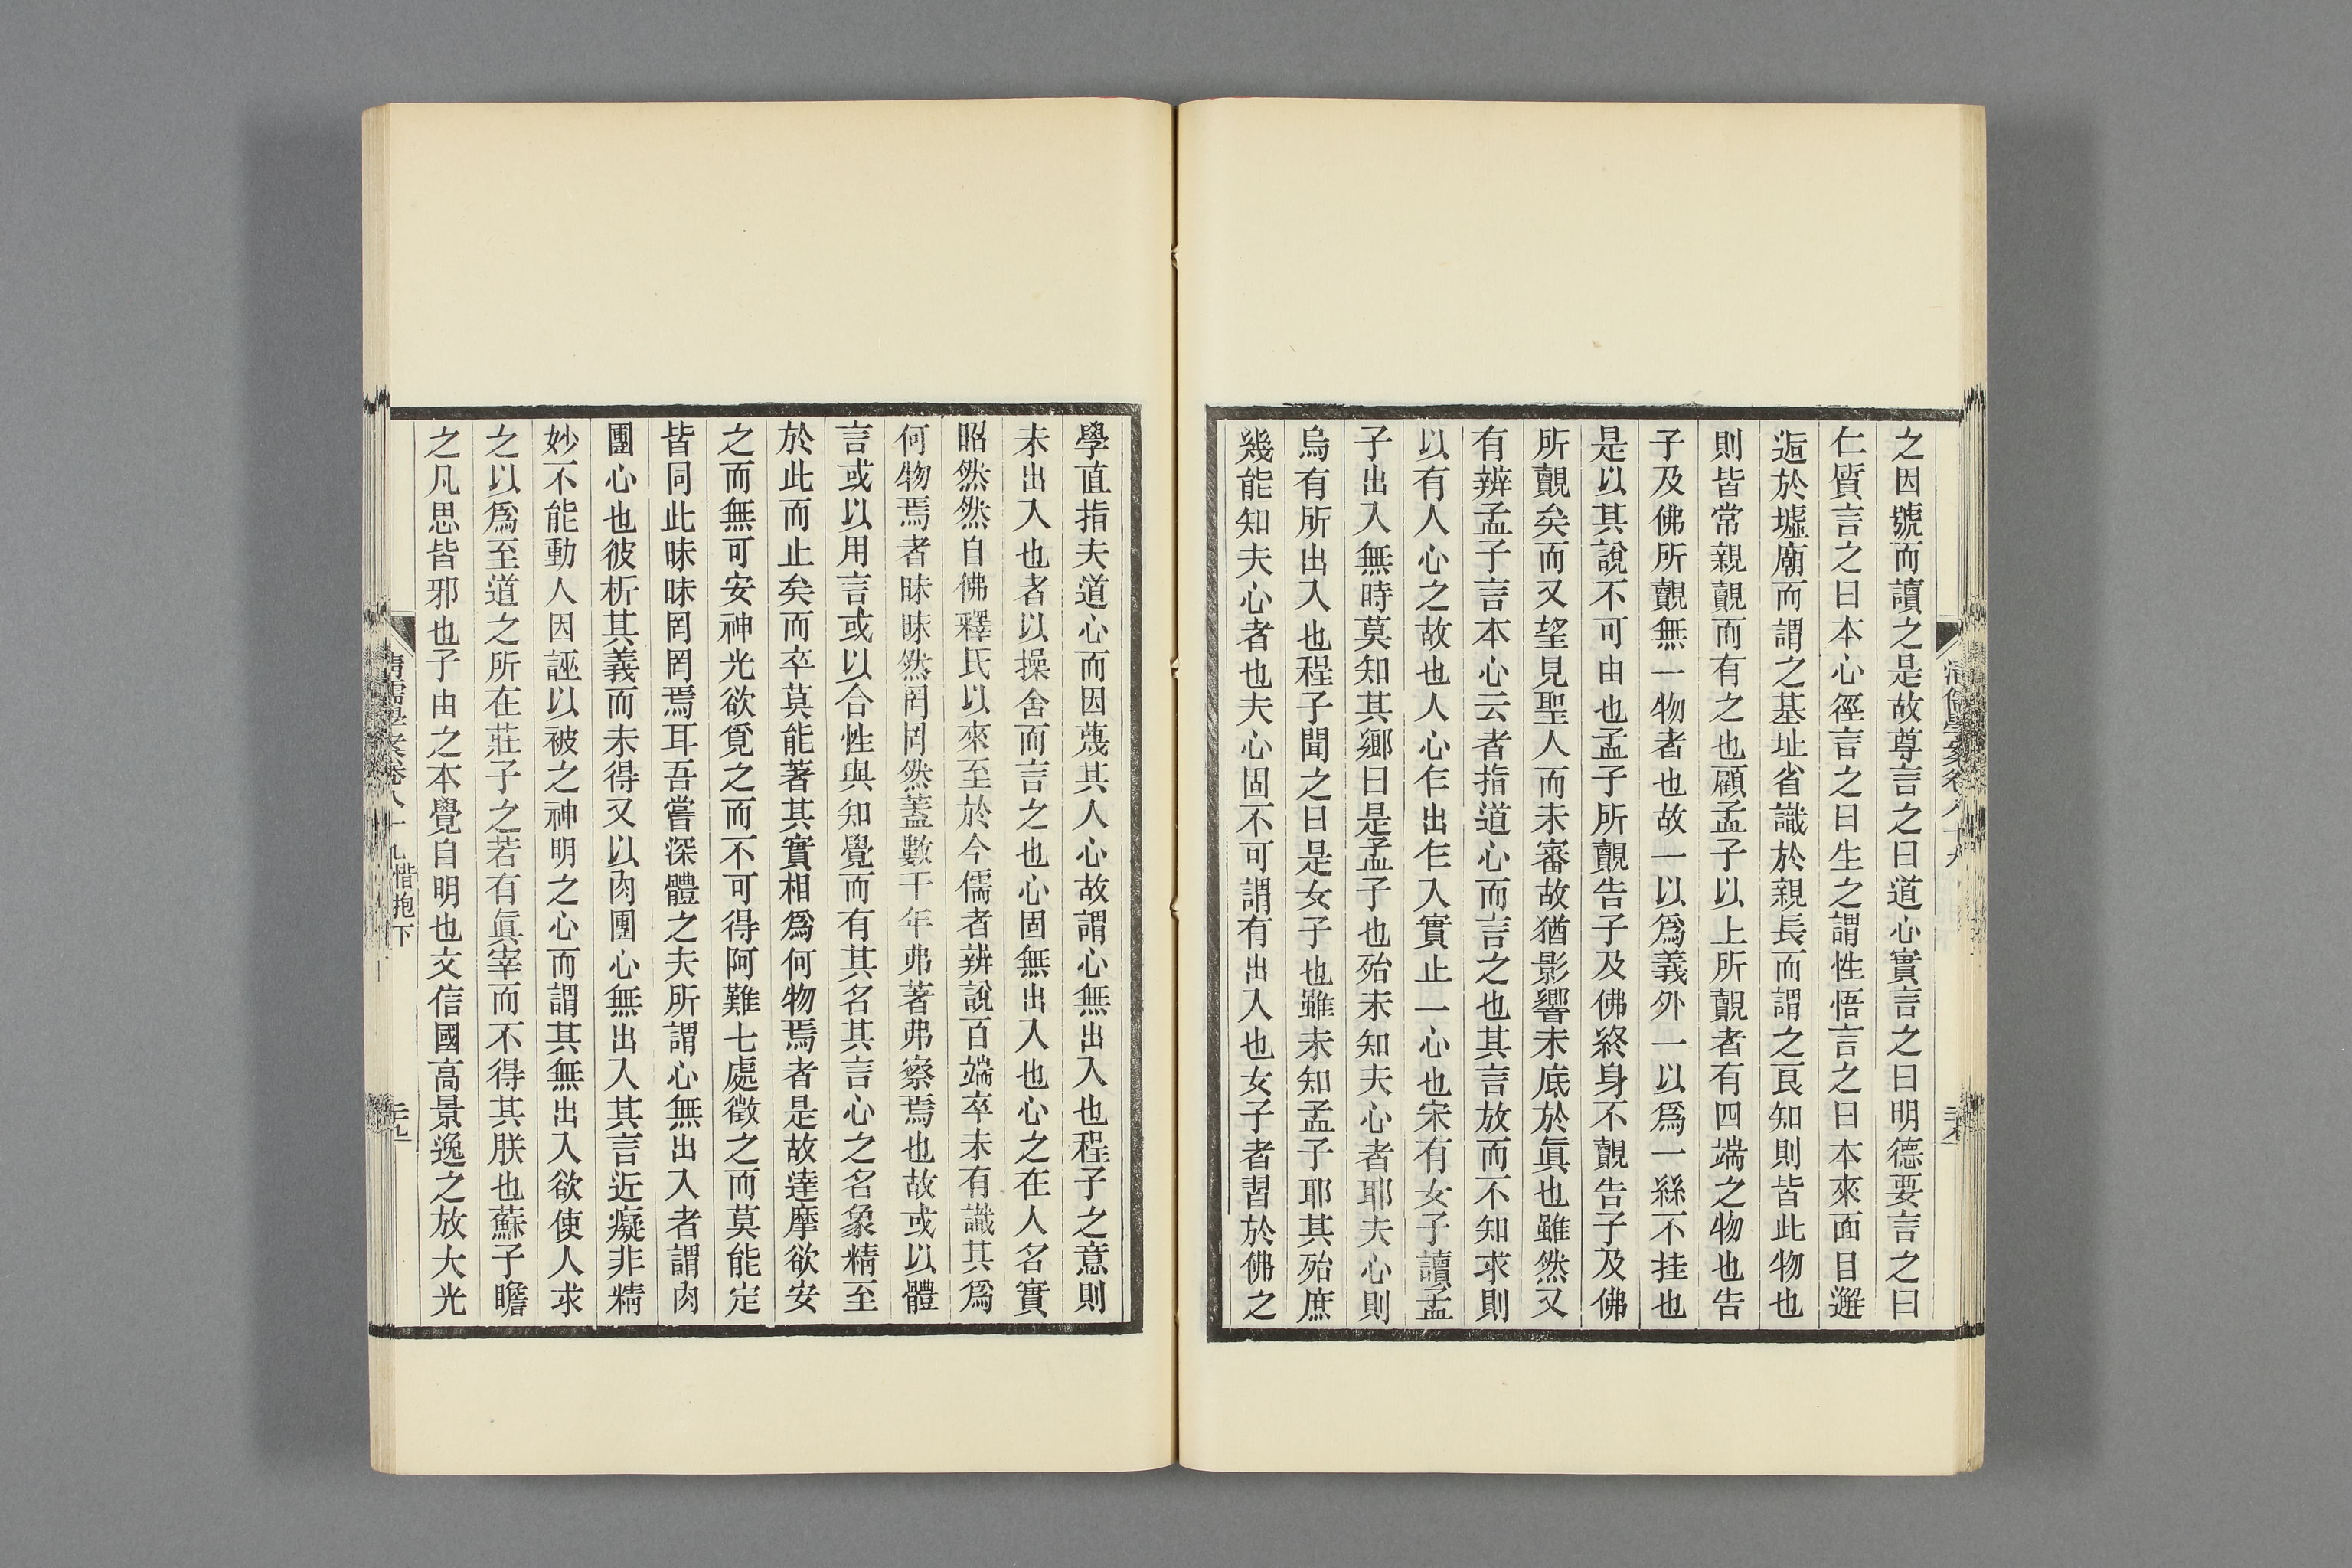 之因號而讀之是故尊言之曰道心實言之曰明德要言之曰
仁質言之曰本心徑言之曰生之謂性悟言之曰本來面目邂
逅於墟廟而謂之基址省識於親長而謂之良知則皆此物也
則皆常親覿而有之也顧孟子以上所覿者有四端之物也告
子及佛所覿無一物者也故一以爲義外一以爲一絲不挂也
是以其說不可由也孟子所覿告子及佛終身不覿告子及佛
所覿矣而又望見聖人而未審故猶影響未底於眞也雖然又
有辨孟子言本心云者指道心而言之也其言放而不知求則
以有人心之故也人心乍出乍入實止一心也宋有女子讀孟
子出入無時莫知其鄉曰是孟子也殆未知夫心者耶夫心則
烏有所出入也程子聞之曰是女子也雖未知孟子耶其殆庶
幾能知夫心者也夫心固不可謂有出入也女子者習於佛之
清儒學案卷八十九
學直指夫道心而因蔑其人心故謂心無出入也程子之意則
未出入也者以操舍而言之也心固無出入也心之在人名實
昭然然自佛釋氏以來至於今儒者辨說百端卒未有識其爲
何物焉者昧昧然罔罔然蓋數千年弗著弗察焉也故或以體
言或以用言或以合性與知覺而有其名其言心之名象精至
於此而止矣而卒莫能著其實相爲何物焉者是故達摩欲安
之而無可安神光欲覓之而不可得阿難七處徵之而莫能定
皆同此昧昧罔罔焉耳吾嘗深體之夫所謂心無出入者謂肉
團心也彼析其義而未得又以肉團心無出入其言近癡非精
妙不能動人因誣以被之神明之心而謂其無出入欲使人求
之以爲至道之所在莊子之若有眞宰而不得其朕也蘇子瞻
之凡思皆邪也子由之本覺自明也文信國高景逸之放大光
清儒學案卷八十九 惜抱下